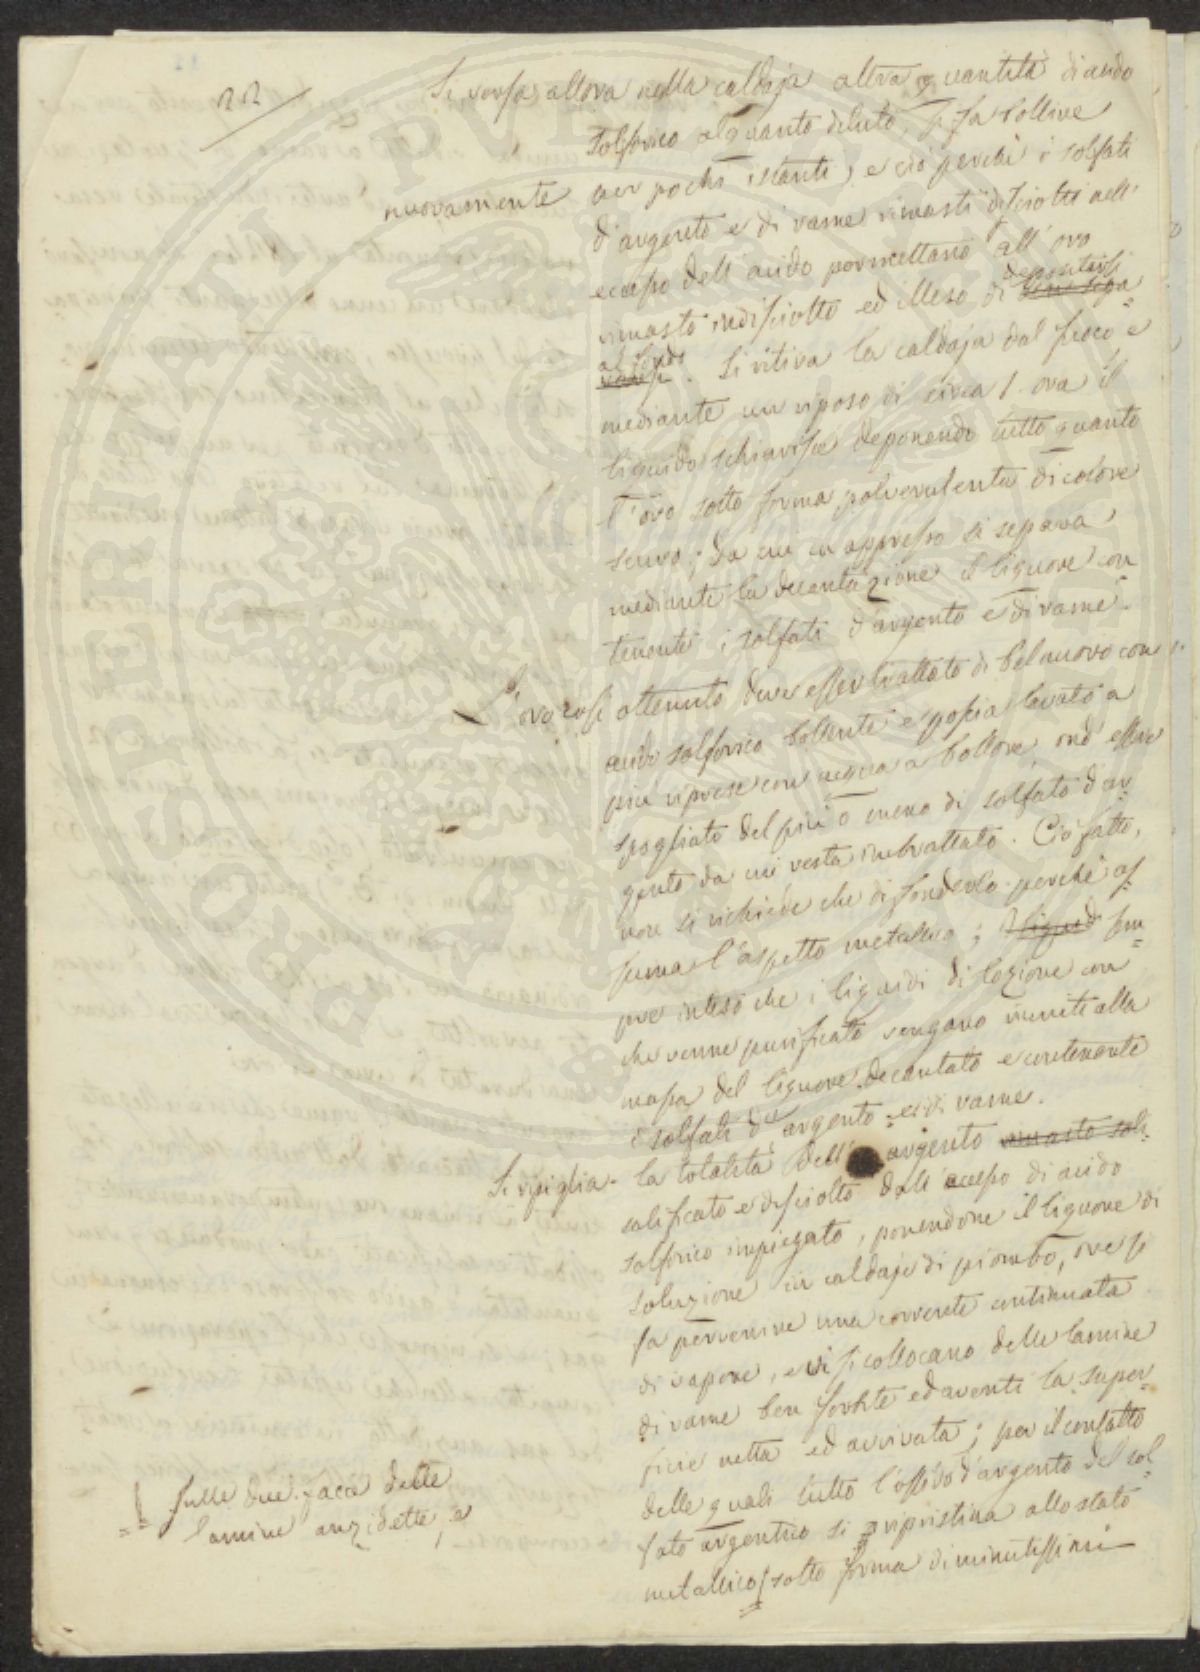 22
Si versa allora nella caldaja altra quantità di acido
solforico alquanto diluto, si fa bollire
nuovamente per pochi istanti; e ciò perchè i solfati
d'argento e di rame rimasti disciolti nell'
eccesso dell'acido permettano all'oro
rimasto indisciolto ed illeso di depositarsi
al fondo. Si ritira la caldaja dal fuoco e
mediante un riposo di circa 1. ora il
liquido schiarisce deponendo tutto quanto
l'oro sotto forma polverulenta di colore
scuro; da cui in appresso si separa
mediante la decantazione il liquore con
tenente i solfati d'argento e di rame.
L'oro così ottenuto deve esser trattato di bel nuovo con
acido solforico bollente e poscia lavato a
più riprese con acqua a bollore, ond'essere
spogliato del più o meno di solfato d'ar
gento da cui resta imbrattato. Ciò fatto,
non si richiede che di fonderlo perchè as=
suma l'aspetto metallico; sem=
pre inteso che i liquidi di lozione con
che venne purificato vengano riuniti alla
massa del liquore decantato e contenente
i solfati d'argento e di rame.
Si ripiglia la totalità dell'argento rimasto soli
salificato e disciolto dall'eccesso di acido
solforico impiegato, ponendone il liquore di
soluzione in caldaje di piombo, ove si
fa pervenire una corrente continuata
di vapore, e vi si collocano delle lamine
di rame ben forbite ed aventi la super
ficie netta ed avvivata; per il contatto
delle quali tutto l'ossido d'argento del sol=
fato argentico si ripristina allo stato
metallico sotto forma di minutissimi
sulle due facce delle
lamine anzidette, e